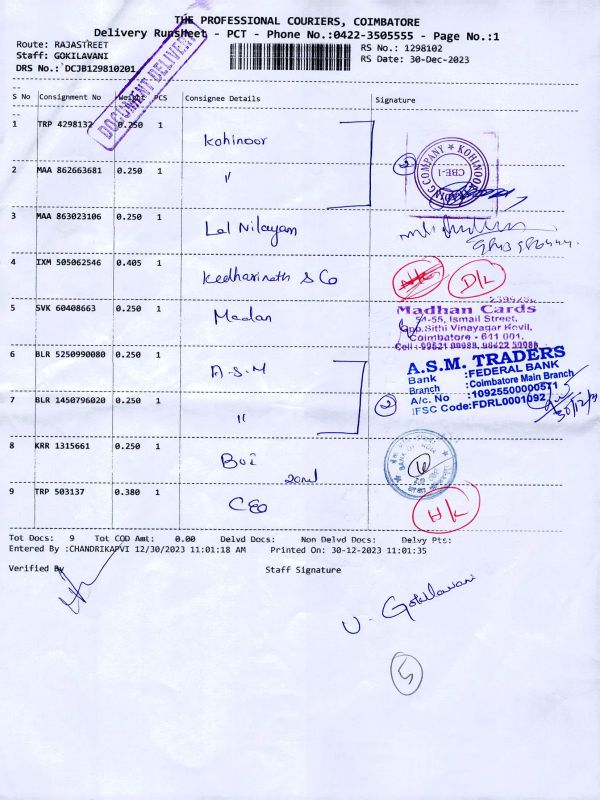 THE PROFESSIONAL COURIERS, COIMBATORE
Delivery Runsheet - PCT - Phone No.:0422-3505555 - Page No.:1
Route: RAJASTREET
Staff: GOKILAVANI
DRS No.: DCJB129810201
RS No.: 1298102
RS Date: 30-Dec-2023
DOCUMENT DELIVERY
S No Consignment No Weight PCS Consignee Details Signature
1 TRP 4298132 0.250 1 Kohinoor
2 MAA 862663681 0.250 1 "
2
TRADING COMPANY * KOHINOOR
CBE-1
3 MAA 863023106 0.250 1 Lal Nilayam
4 IXM 505062546 0.405 1 Kedharinath & Co
D/L
5 SVK 60408663 0.250 1 Madan
Madhan Cards
54-55, Ismail Street,
Opp.Sithi Vinayagar Kovil,
Coimbatore - 641 001.
6 BLR 5250990080 0.250 1 A.S.M
7 BLR 1450796020 0.250 1 "
2
A.S.M. TRADERS
Bank :FEDERAL BANK
Branch :Coimbatore Main Branch
A/c. No :10925500000571
IFSC Code:FDRL0001092
30/12/23
8 KRR 1315661 0.250 1 BOI
BANK OF INDIA
9 TRP 503137 0.380 1 CEO
H/L
Tot Docs: 9 Tot COD Amt: 0.00 Delvd Docs: Non Delvd Docs: Delvy Pts:
Entered By :CHANDRIKAPVI 12/30/2023 11:01:18 AM Printed On: 30-12-2023 11:01:35
Verified By Staff Signature
U. Gokilavani
5